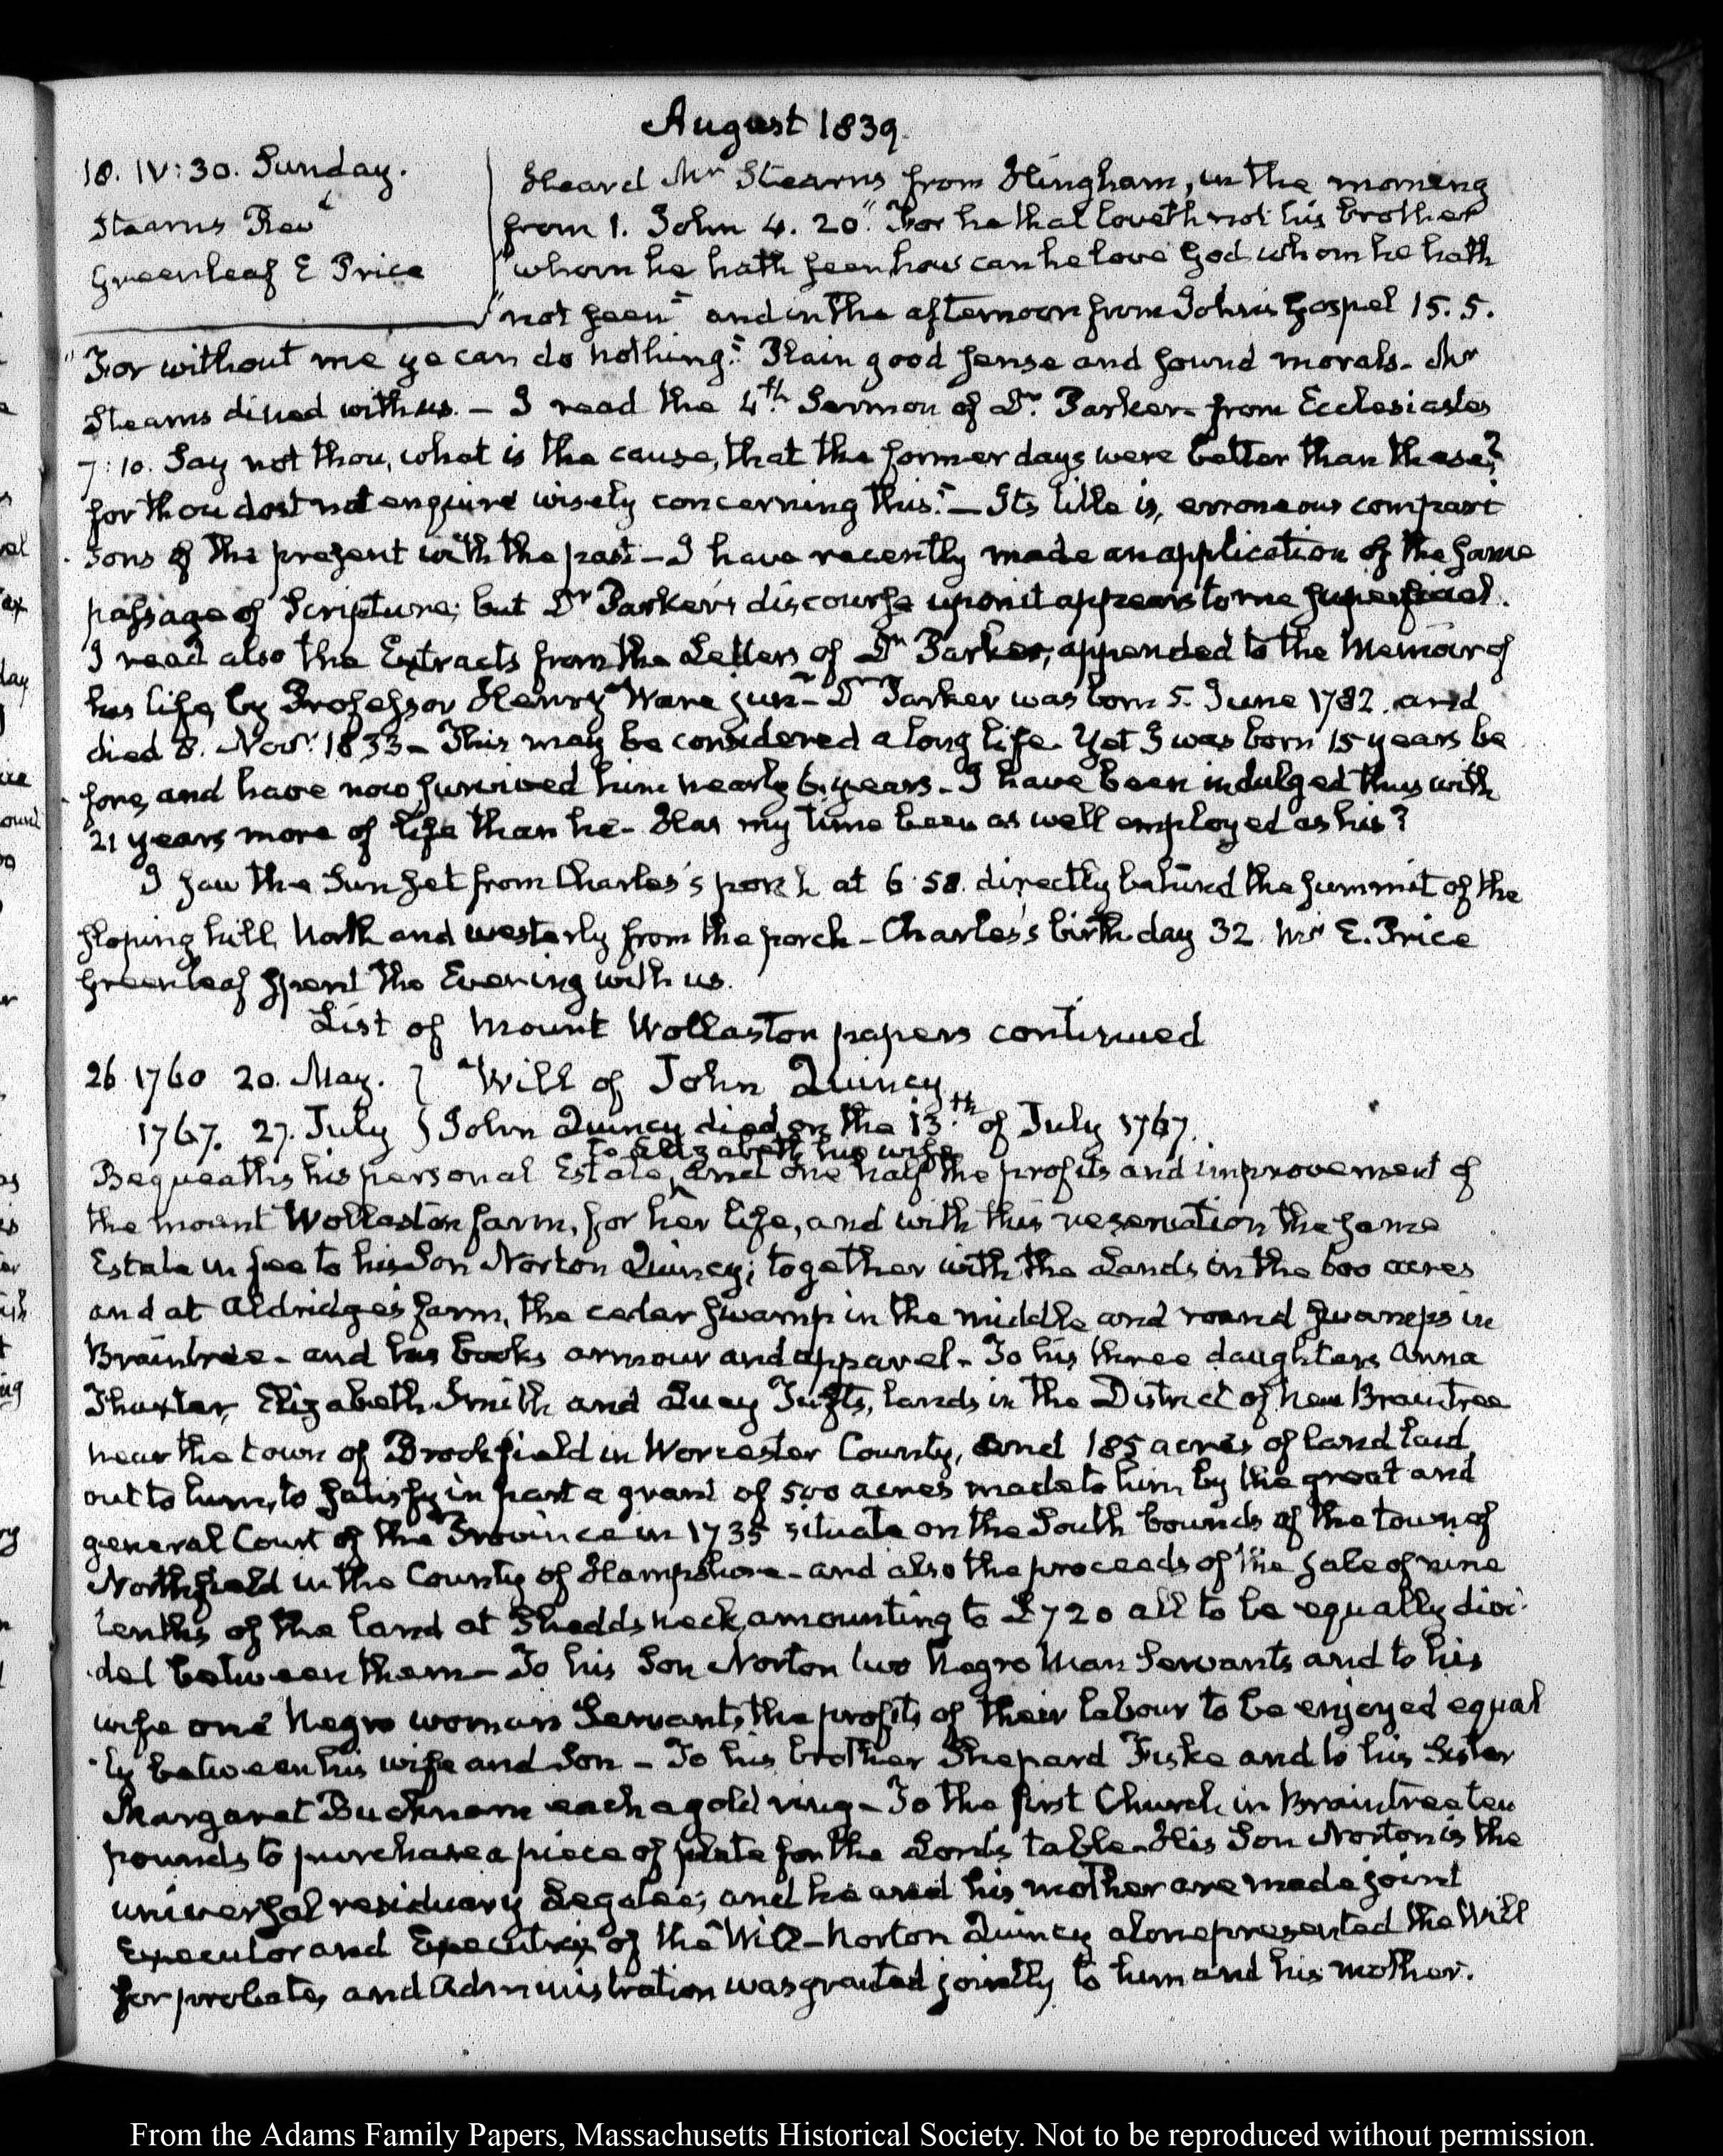 August 1839.
18. IV:30. Sunday.
Stearns Revd
Greenleaf E Price
Heard Mr Stearns from Hingham, in the morning
from 1. John 4. 20. "For he that loveth not his brother
"whom he hath seen how can he love God whom he hath
"not seen" and in the afternoon from John's Gospel 15. 5.
"For without me ye can do nothing." Plain good sense and sound morals. Mr
Stearns dined with us. — I read the 4th. Sermon of Dr. Parker from Ecclesiastes
7:10. Say not thou, what is the cause, that the former days were better than these?
for thou dost not enquire wisely concerning this." — Its title is, erroneous compari
sons of the present with the past — I have recently made an application of the same
passage of Scripture; but Dr Parker's discourse upon it appears to me superficial.
I read also the Extracts from the Letters of Dr Parker, appended to the Memoir of
his life, by Professor Henry Ware junr — Dr Parker was born 5. June 1782. and
died 8. Novr. 1833 — This may be considered a long life. Yet I was born 15 years be
fore, and have now survived him nearly 6. years. — I have been indulged thus with
21 years more of life than he — Has my time been as well employed as his?
I saw the Sun set from Charles's porch at 6. 58. directly behind the summit of the
sloping hill, North and westerly from the porch — Charles's birth day 32. Mr E. Price
Greenleaf spent the Evening with us.
List of Mount Wollaston papers continued
26 1760 20. May. } Will of John Quincy
1767. 27. July } John Quincy died on the 13.th of July 1767.
to Elizabeth his wife
Bequeaths his personal Estate, and one half the profits and improvement of
the mount Wollaston farm, for her life, and with this reservation the same
Estate in fee to his Son Norton Quincy; together with the Lands in the 600 acres
and at Aldridge's farm, the cedar swamp in the middle and round swamps in
Braintree — and his books armour and apparel — To his three daughters Anna
Thaxter, Elizabeth Smith and Lucy Tufts, lands in the District of New Braintree
near the town of Brookfield in Worcester County, and 185 acres of land laid
out to him, to satisfy in part a grant of 500 acres made to him by the great and
general Court of the Province in 1735 situate on the South bounds of the town of
Northfield in the County of Hampshire — and also the proceeds of the sale of nine
tenths of the land at Shedds neck, amounting to £720 all to be equally divi
ded between them — To his Son Norton two Negro Man Servants and to his
wife one Negro woman Servant, the profits of their labour to be enjoyed equal
ly between his wife and Son — To his brother Shepard Fiske and to his Sister
Margaret Bucknam each a gold ring — To the first Church in Braintree ten
pounds to purchase a piece of plate for the Lords table — His Son Norton is the
universal residuary Legatee; and he and his mother are made joint
Executor and Executrix of the Will — Norton Quincy alone presented the Will
for probate, and Administration was granted jointly to him and his mother.
From the Adams Family Papers, Massachusetts Historical Society. Not to be reproduced without permission.